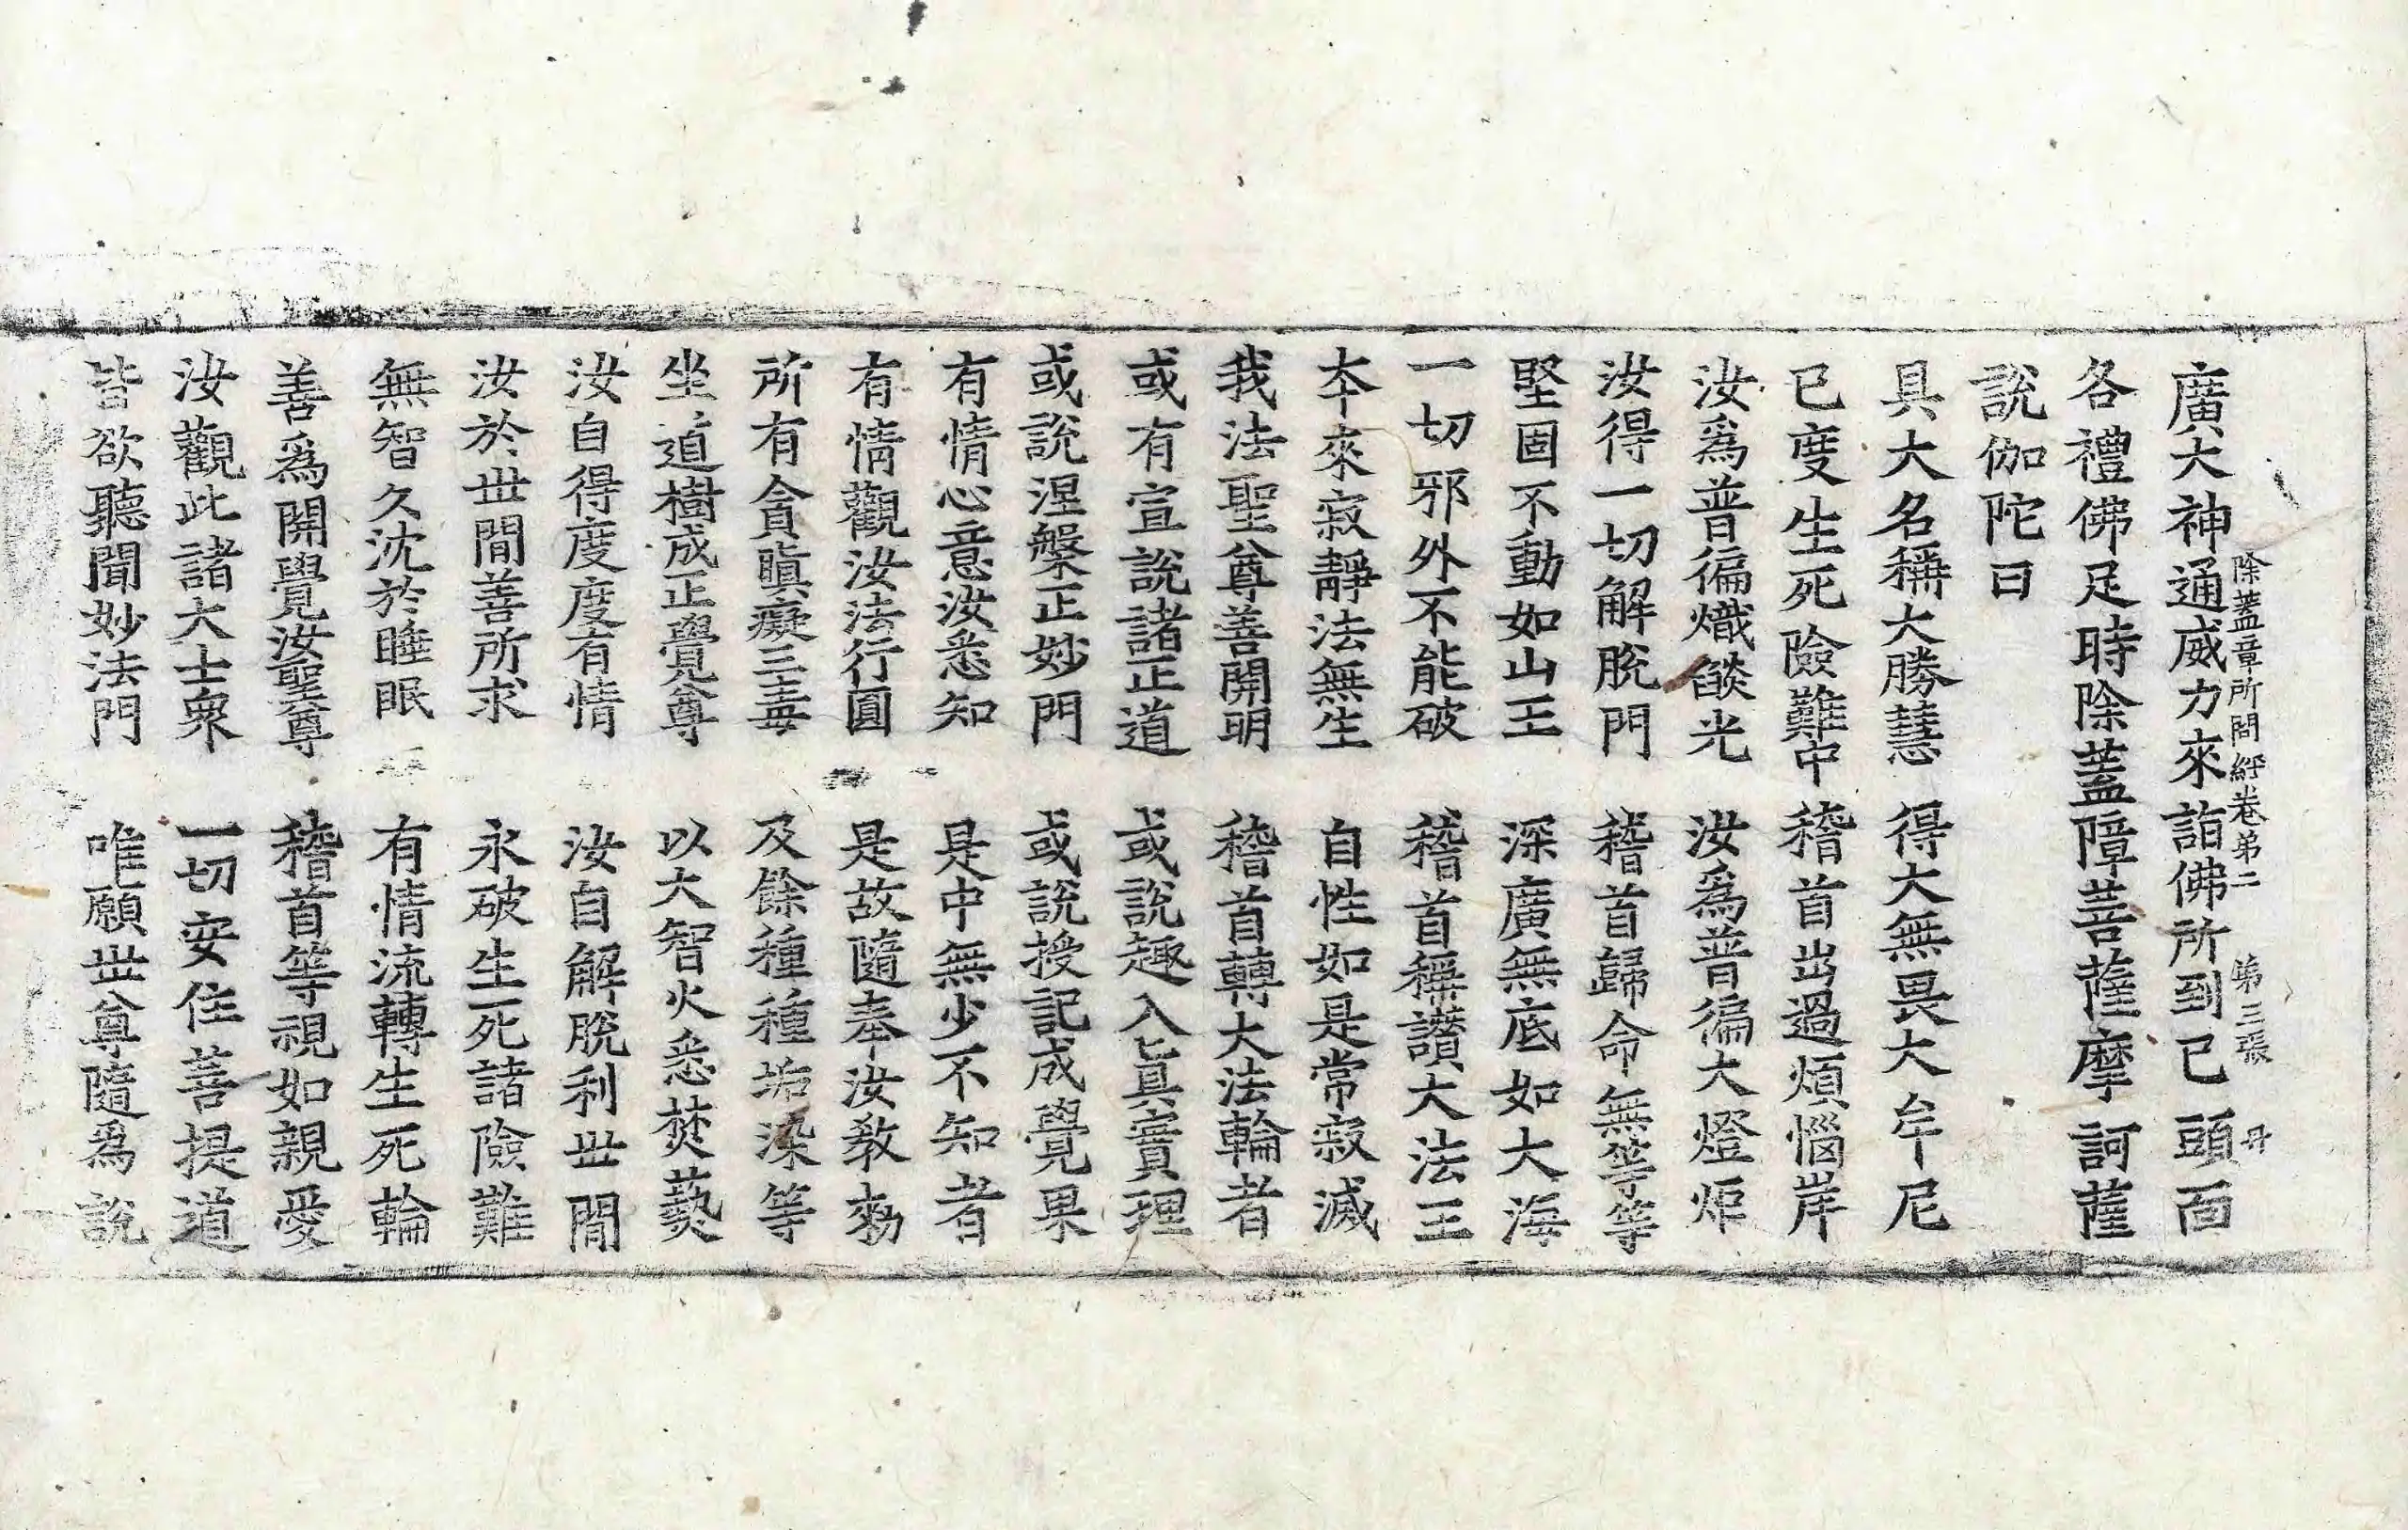 除蓋章所問經卷第二　第三張　丹
廣大神通威力來詣佛所到已頭面
各禮佛足時除蓋障菩薩摩訶薩
說伽陀曰
具大名稱大勝慧　得大無畏大牟尼
已度生死險難中　稽首出過煩惱岸
汝爲普徧熾燄光　汝爲普徧大燈炬
汝得一切解脫門　稽首歸命無等等
堅固不動如山王　深廣無底如大海
一切邪外不能破　稽首稱讚大法王
本來寂靜法無生　自性如是常寂滅
我法聖尊善開明　稽首轉大法輪者
或有宣說諸正道　或說趣入眞實理
或說涅槃正妙門　或說授記成覺果
有情心意汝悉知　是中無少不知者
有情觀汝法行圓　是故隨奉汝教勑
所有貪瞋癡三毒　及餘種種垢染等
坐道樹成正覺尊　以大智火悉焚爇
汝自得度度有情　汝自解脫利丗間
汝於丗間善所求　永破生死諸險難
無智久沈於睡眠　有情流轉生死輪
善爲開覺汝聖尊　稽首等視如親愛
汝觀此諸大士衆　一切安住菩提道
皆欲聽聞妙法門　唯願丗尊隨爲說